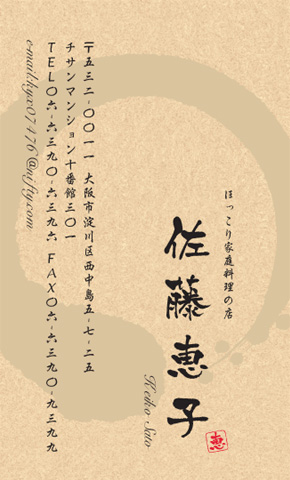 ほっこり家庭料理の店
佐藤恵子
Keiko Sato
恵
〒五三二-〇〇一一 大阪市淀川区西中島五-七-二五
チサンマンション十番館三〇一
TEL〇六-六三九〇-六三九六 FAX〇六-六三九〇-九三九九
e-mail:kyx07476@nifty.com